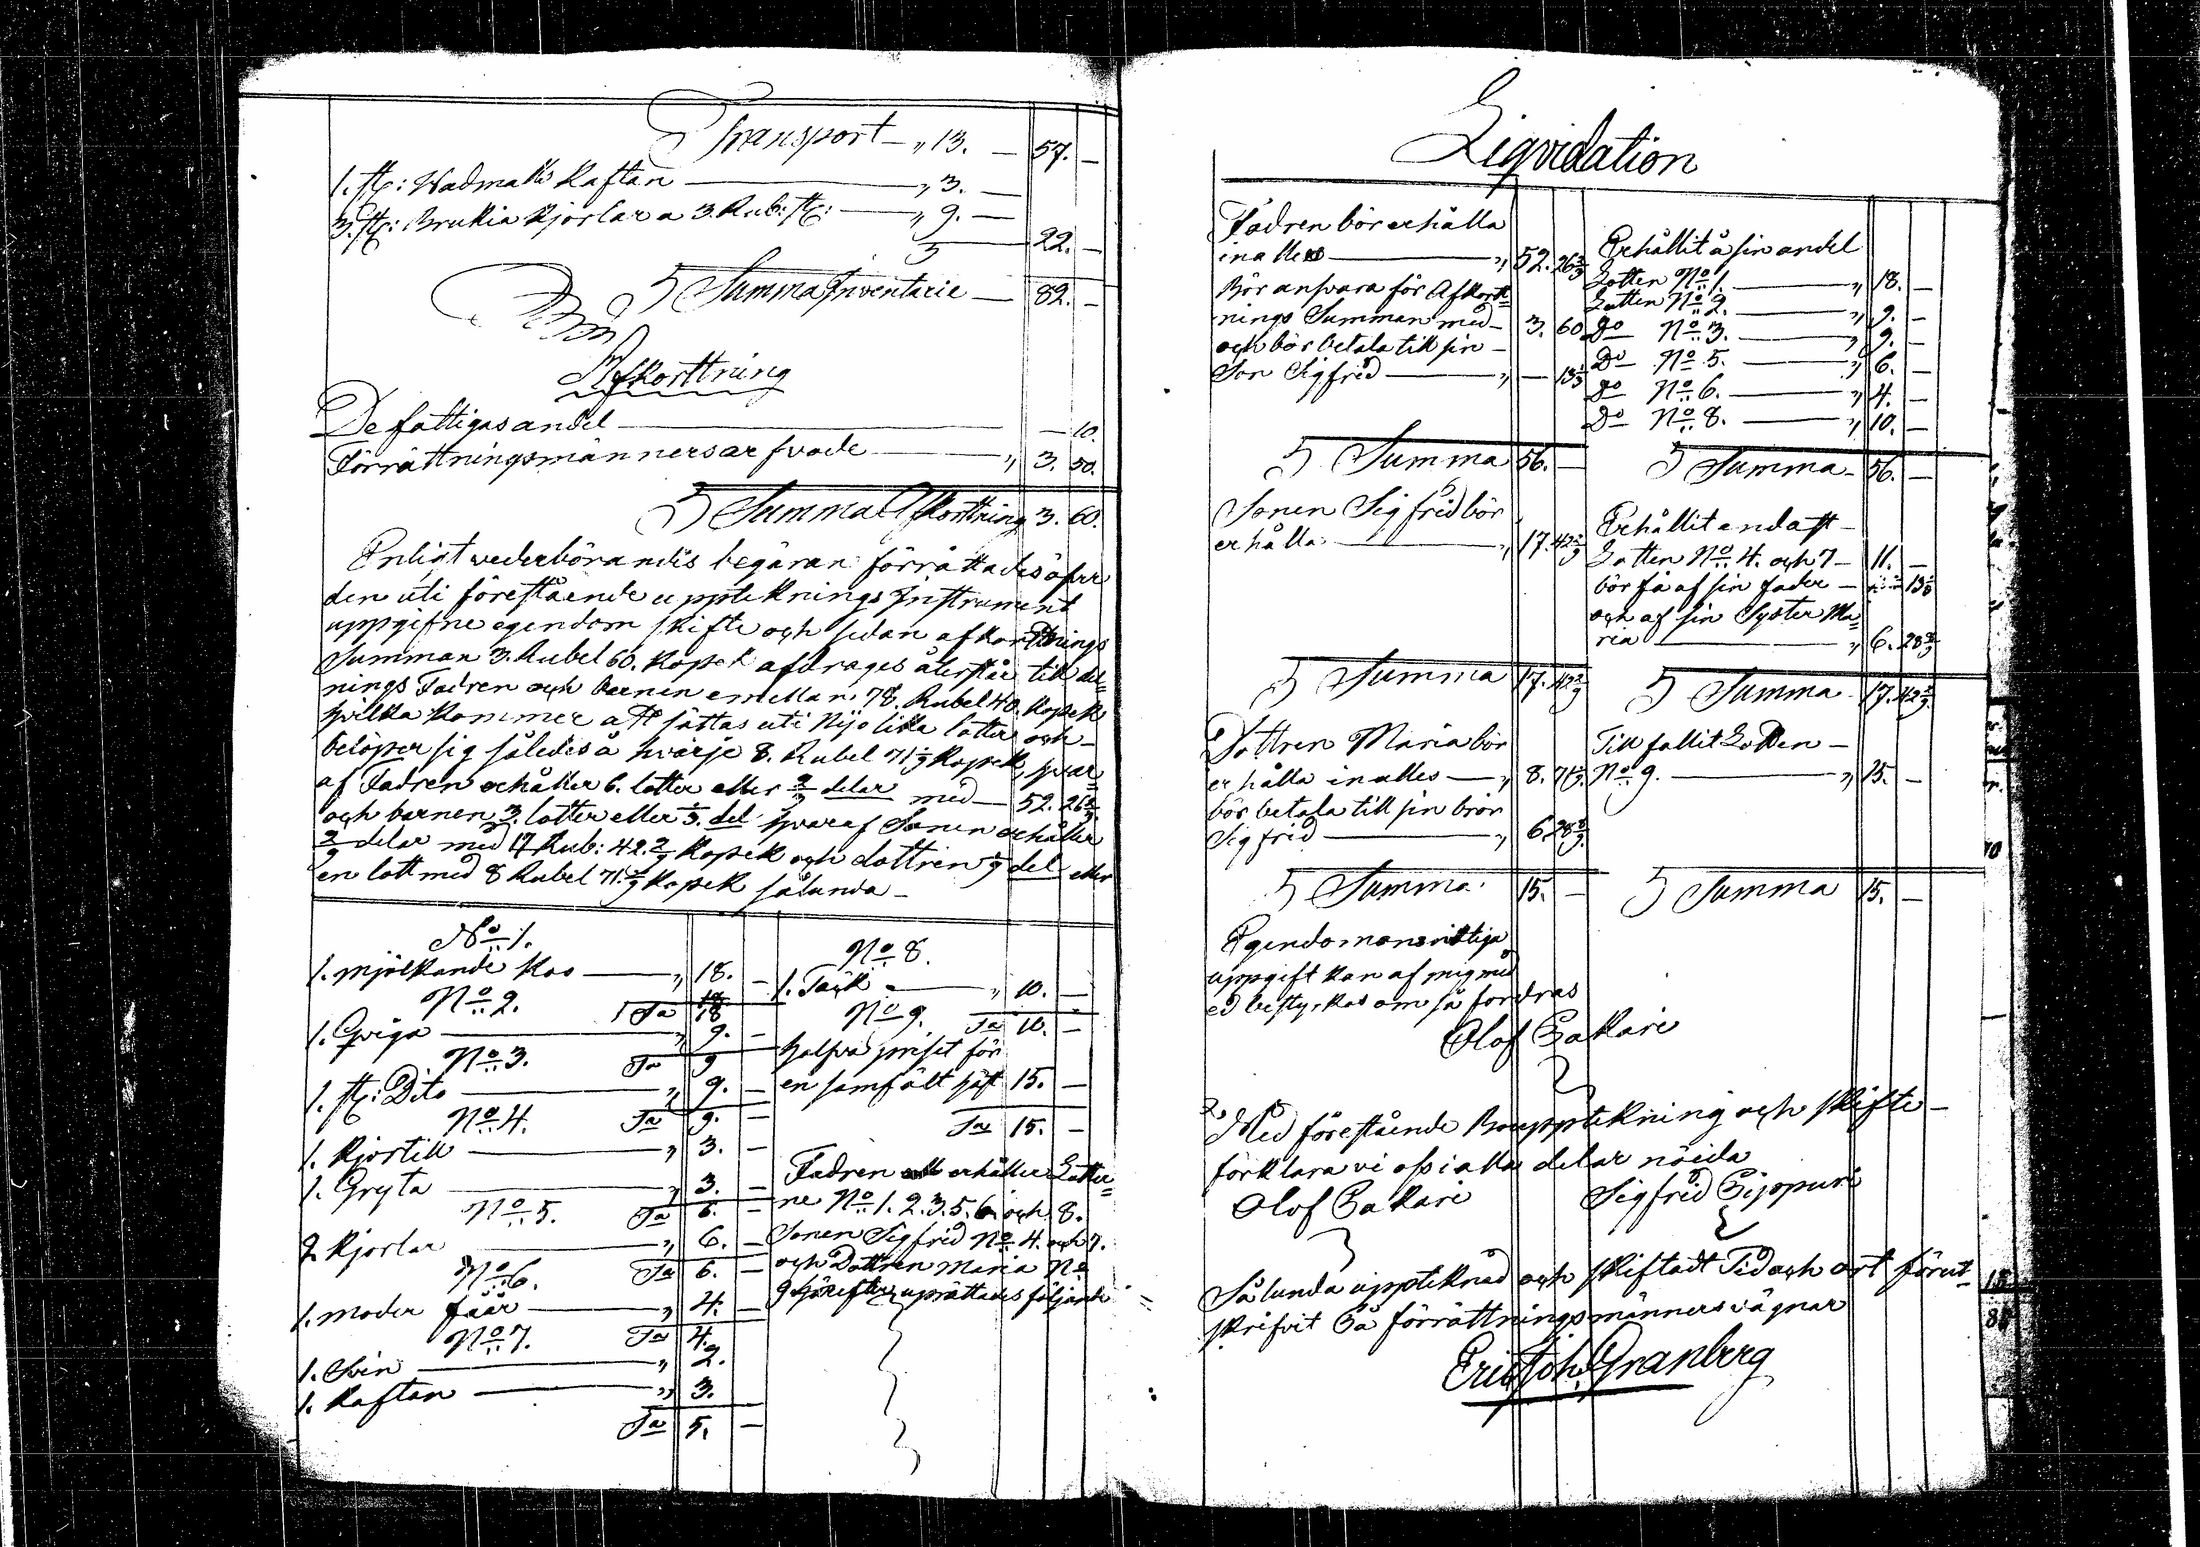 Transport — „ 13. — 57. —
1. st: Wadmals Kaftan — „ 3. —
3. st: Brukia Kjortlar a 3. Rub: st: — „ 9. —
22. —
Summa Inventarie — 82. —
Afkorttning
De fattigas andel — — 10.
Förrättningsmännernes arfvode — „ 3. 50.
Summa Afkorttning 3. 60.
Enligt wederbörandes begäran förrättades öfver
den uti förestående uppteknings Instrument
uppgifne egendom skifte och sedan afkorttnings
Summan 3. Rubel 60. Kopek afdrages återstår till del=
nings Fadren och barnen emellan 78. Rubel 40. Kopek
hvilka kommer att sättas uti nijo lika lotter och
belöper sig således å hvarje 8. Rubel 71 1/9 Kopek, hvar
af Fadren erhåller 6. lotter eller 2/3 delar med — 52. 26 2/3
och barnen 3. lotter eller 1/3. del hvaraf Sonen erhåller
2/9 delar med 17 Rub: 42. 2/9 Kopek och dottren 1/9 del eller
en lott med 8 Rubel 71. 1/9 Kopek sålunda —
No 1.
1. mjölkande Koo — „ 18. —
No 2. Sa 18
1. Qviga — „ 9. —
No 3. Sa 9
1. st: Dito — „ 9. —
No 4. Sa 9. —
1. Kjortell — „ 3. —
1. Gryta — „ 3. —
No 5. Sa 6. —
2 Kjorlar — „ 6. —
No 6. Sa 6. —
1. moder fåår — „ 4. —
No 7. Sa 4.
1. Svin — „ 2.
1. Kaftan — „ 3.
Sa 5. —
No 8.
1. Täck — „ 10. —
No 9. Sa 10. —
halfva priset för
en samfält häst 15. —
Sa 15. —
Fadren erhåller Lotter=
ne No 1. 2. 3. 5. 6. och 8.
Sonen Sigfrid No 4. och 7.
och Dottren Maria No
9 härefter uprättades följande
Liqvidation
Fadren bör erhålla
inalles — „ 52. 26 2/3
Bör ansvara för Afkortt=
nings Summan med — 3. 60
och bör betala till sin —
Son Sigfrid — „ — 13 1/3
Summa 56. —
Erhållit å sin andel
Lotten No 1. — „ 18. —
Lotten No 2. — „ 9. —
Do No 3. — „ 9. —
Do No 5. — „ 6. —
Do No 6. — „ 4. —
Do No 8. — „ 10. —
Summa — 56. —
Sonen Sigfrid bör
erhålla — „ 17. 42 2/9
Summa 17. 42 2/9
Erhållit endast —
Lotten No 4. och 7 — 11. —
bör få af sin fader — 13 1/3
och af sin Syster Ma=
ria — „ 6. 28 8/9
Summa — 17. 42 2/9
Dottren Maria bör
erhålla inalles — „ 8. 71 1/9
bör betala till sin bror
Sigfrid — „ 6 28 8/9
Summa 15. —
Till fallit Lotten —
No 9. — „ 15. —
Summa 15. —
Egendomens riktiga
uppgift kan af mig med
ed bestyrkas om så fordras
Olof Pakari
Med förestående Bouppteckning och skifte —
förklara vi oss i alla delar nöida
Olof Pakari Sigfrid
Sålunda upptecknad och skiftadt Tid och ort förut=
skrifvit På förrättningsmänners vägnar
Eric Joh. Granberg